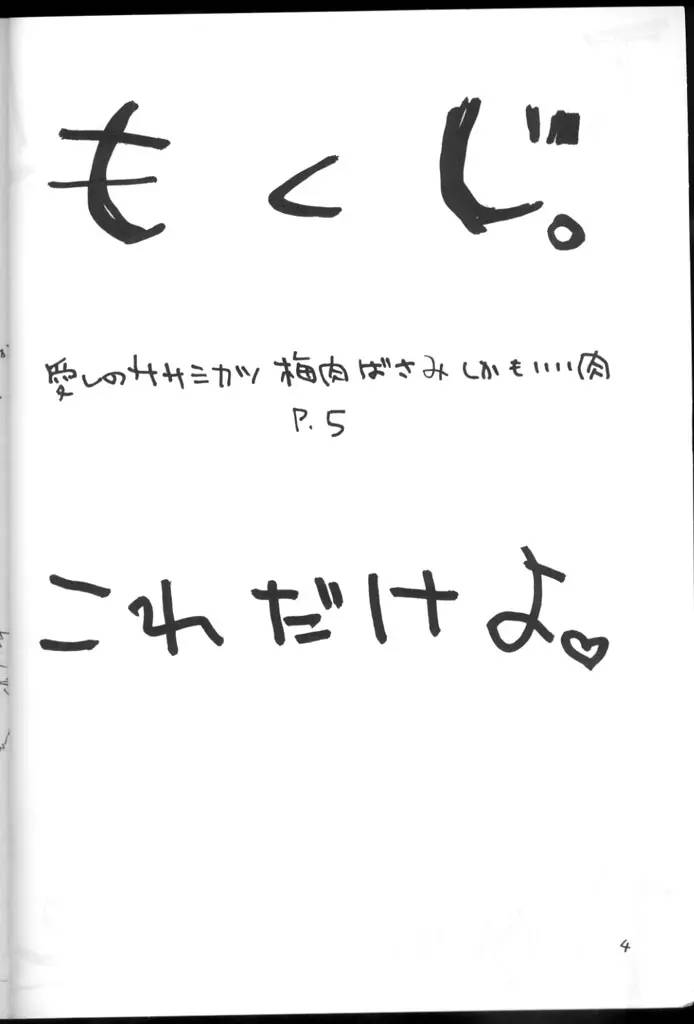 もくじ。
愛しのササミカツ 梅肉ばさみ しかもいいい肉
P.5
これだけよ♡
4